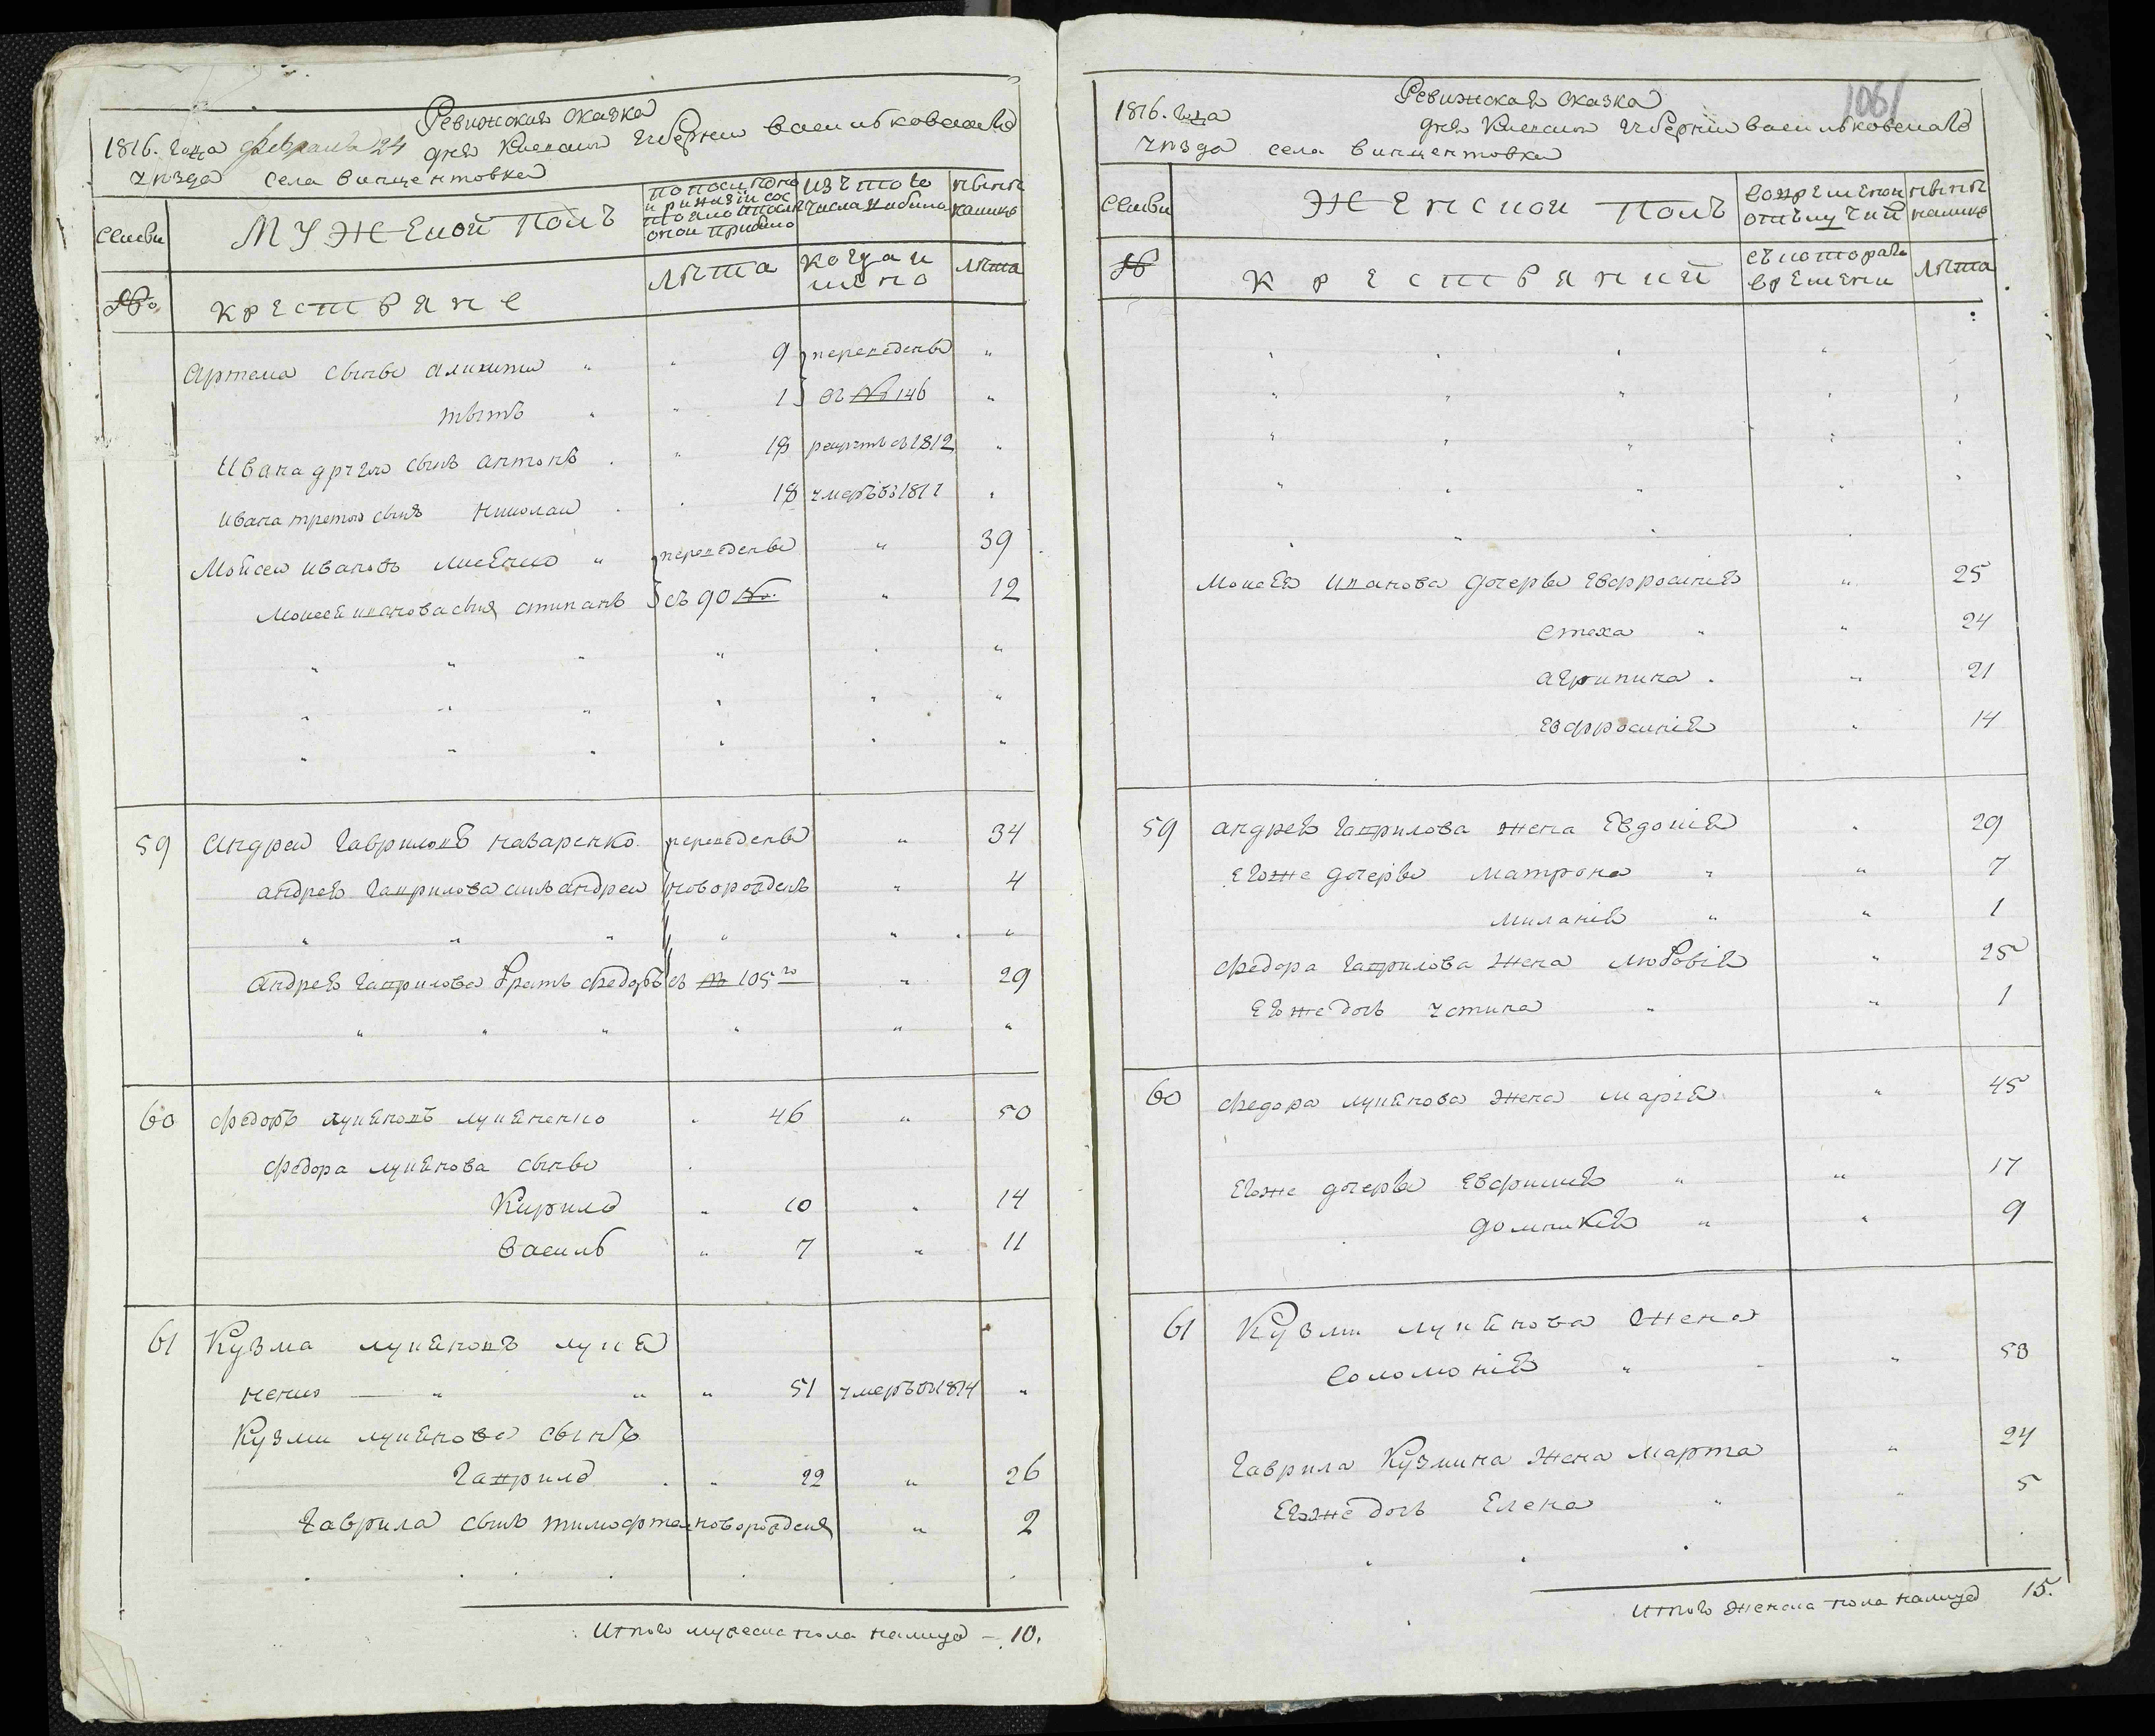 Ревижская сказка
1816. Года Февраля 24 дня Киевской Губернии васильковскаго
уезда села винцентовки
семьи
МУЖЕской Полъ
по последней ревизіи состояло и после оной прибыло
изъ того числа выбыло
ныне налицо
№о
крестьяне
лѣта
когда и имено
лѣта
Артема сыны аликити " " 9 переведены "
титъ " " 15 въ № 146 "
Ивана другаго сынъ антонъ . " 18 рекрутъ въ 1812 "
ивана третьего сынъ николай . . 18 умеръ въ 1811 "
Мойсей ивановъ лисенко " переведены " 39
Моисея иванова сынъ стипанъ съ 90 № " 12
59 Андрей Гавриловъ назаренко переведены " 34
андрея гаврилова сынъ андрей новорожденъ " 4
Андрея гаврилова братъ федоръ съ № 105го " 29
60 федоръ лукяновъ лукяненко " 46 " 50
федора лукянова сыны
Кирило " 10 " 14
Василь " 7 " 11
61 Кузма лукяновъ лукя
ненко — " " " 51 умеръ въ 1814 "
Кузми лукянова сынъ
гаврило . " 22 " 26
Гаврила сынъ тимофтей новорожденъ " 2
Итого мужеска пола налицо — 10.
1061
Ревижская сказка
1816. Года дня Киевской Губерніи васильковскаго
уезда села винцентовки
семьи
ЖЕнской Полъ
во временной отлучкѣ
ныне налицо
№
крестьянки
съ котораго времени
лѣта
Моисея иванова дочеры евфросинія " 25
стеха " " 24
агрипина . " 21
евфросинія " 14
59 андрея гаврилова жена Евдокія " 29
егоже дочеры матрона " " 7
миланія " " 1
федора гаврилова жена любовія " 25
егоже дочь устина " " 1
60 федора лукянова жена марія " 45
егоже дочеры евфимія " " 17
домникія " " 9
61 Кузми лукянова жена
соломонія " " 53
гаврила Кузмина жена марта " 24
егоже дочь Елена " " 5
Итого женска пола налицо 15.